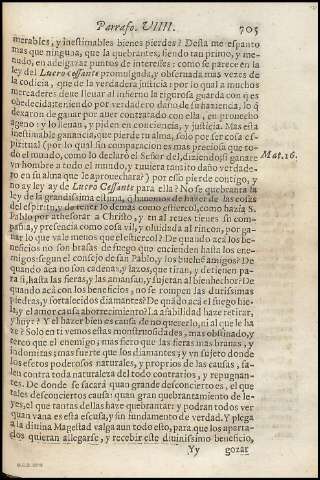 Parrafo. VIIII. 705
merables, y inestimables bienes pierdes? Desta me espanto
mas que ninguna, que la quebrantes, siendo tan primo, y me-
nudo, en adelgazar puntos de interesse: como se parece en la
ley del Lucro Cessante promulgada, y obseruada mas vezes de
la codicia, que de la verdadera justicia: por lo qual a muchos
mercaderes deue lleuar al infierno la rigurosa guarda con q̃ es
obedecida: teniendo por verdadero daño de su hazienda, lo q̃
dexaron de ganar por auer contratado con ella, en prouecho
ageno: y lo lleuan, y piden en conciencia, y justicia. Mas esta
inestimable ganancia, que pierde tu alma, solo por ser cosa es-
piritual (por lo qual sin comparacion es mas preciosa que to-
do el mundo, como lo declarò el Señor del, diziendo, si ganare
vn hombre a todo el mundo, y tuuiera tansito daño verdade-
ro en su alma que le aprouechara?) por esso pierde contigo, y
no ay ley ay de Lucro Cessante para ella? No se quebranta la
ley de la grandissima estima, q̃ hauemos de hazer de las cosas
del espiritu, de tener lo demàs como estiercol, como hazia S.
Pablo por athesorar a Christo, y tu al reues tienes su com-
pañia, y presencia como cosa vil, y oluidada al rincon, por ga-
nar lo que vale menos que el estiercol? De quando acà los be-
neficios no son brasas de fuego que encienden hasta los ene-
migos: segun el consejo de san Pablo, y los buche amigos? De
quando acà no son cadenas, y lazos, que tiran, y detienen pa-
ra si, hasta las fieras, y las amansan, y sujetan al bien hechor? De
quando acà con los beneficios, no se rompen las durissimas
piedras, y fortalecidos diamantes? De quàdo acà el fuego hie-
la, y el amor causa aborrecimiento? La afabilidad haze retirar,
y huyr? Y el hazer bien es causa de no quererlo, ni al que le ha
ze? Solo en ti vemos estas monstruosidades, mas obstinado, y
terco que el enemigo; mas fiero que las fieras mas brauas, y
indomitas; mas fuerte que los diamantes; y vn sujeto donde
los efetos poderosos naturales, y propios de las causas, sa-
len contra toda naturaleza del todo contrarios, y repugnan-
tes. De donde se sacarà quan grande desconcierto es, el que
tales desconciertos causa: quan gran quebrantamiento de le-
yes, el que tantas dellas haze quebrantar: y podran todos ver
quan vana es esta escusa, y sin fundamento de verdad. Y plega
a la diuina Magestad valga aun todo esto, para que los aparta-
dos quieran allegarse, y recebir este diuinissimo beneficio,
Mat. 16.
Yy gozar